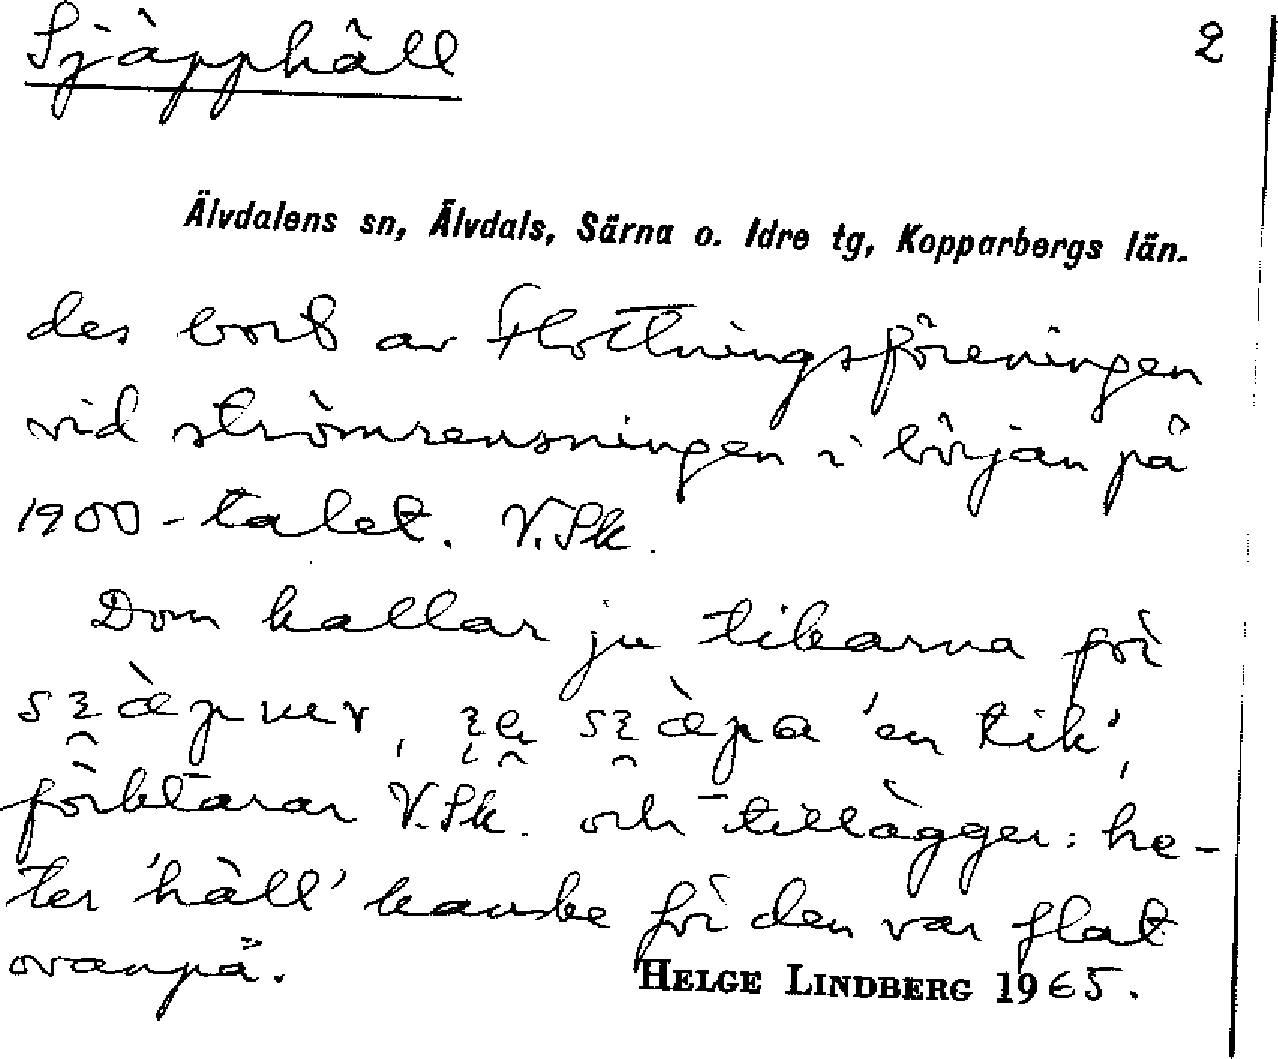 Sjäpphäll 2
Älvdalens sn, Älvdals, Särna o. Idre tg, Kopparbergs län.
des bort av Flottningsföreningen
vid strömrensningen i början på
1900-talet. V.Sk.
Dom kallar ju tikarna för
'en tik',
förklarar V.Sk. och tillägger: he-
ter 'häll' kanske för den var flat
ovanpå.
HELGE LINDBERG 1965.